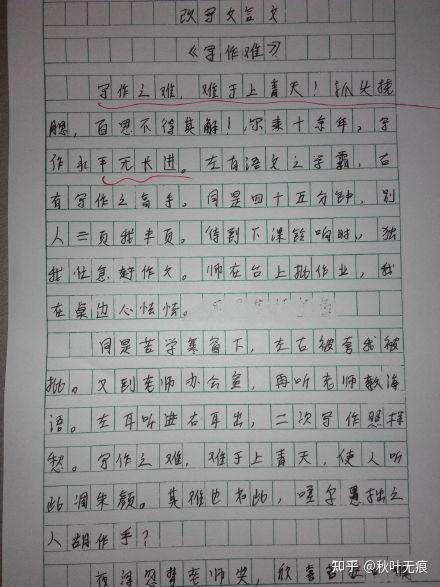 改写文言文
《写作难》
写作之难，难于上青天！抓头挠
腮，百思不得其解！尔来十余年，写
作水平无长进。左有语文之学霸，右
有写作之高手。同是四十五分钟，别
人三页我半页。待到下课铃响时，独
我忙怠好作文。师在台上批作业，我
在桌边心怯怯。
同是苦学寒窗下，左右被夸我被
批。又到老师办公室，再听老师教诲
语。左耳听进右耳出，二次写作照样
愁。写作之难，难于上青天，使人听
此凋朱颜。其难也若此，嗟尔愚拙之
人胡作手？
夜深忽梦老师笑，欣喜
知乎 @秋叶无痕